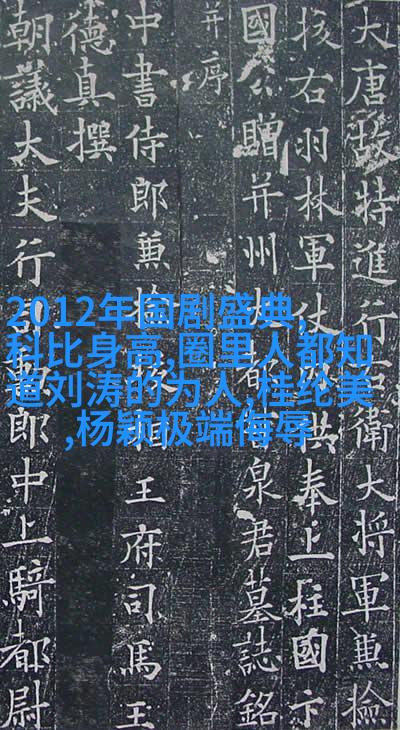 大唐故特進行衛大將軍兼撿
挍右羽林軍仗供奉上柱國卞
國公贈并州大泉君墓誌銘
并序
中書侍郎兼撿王府司馬王
德真撰
朝議大夫行郎中上騎都尉
2012年国剧盛典,
科比身高,圈里人都知
道刘涛的为人,桂纶美
,杨颖极端侮辱